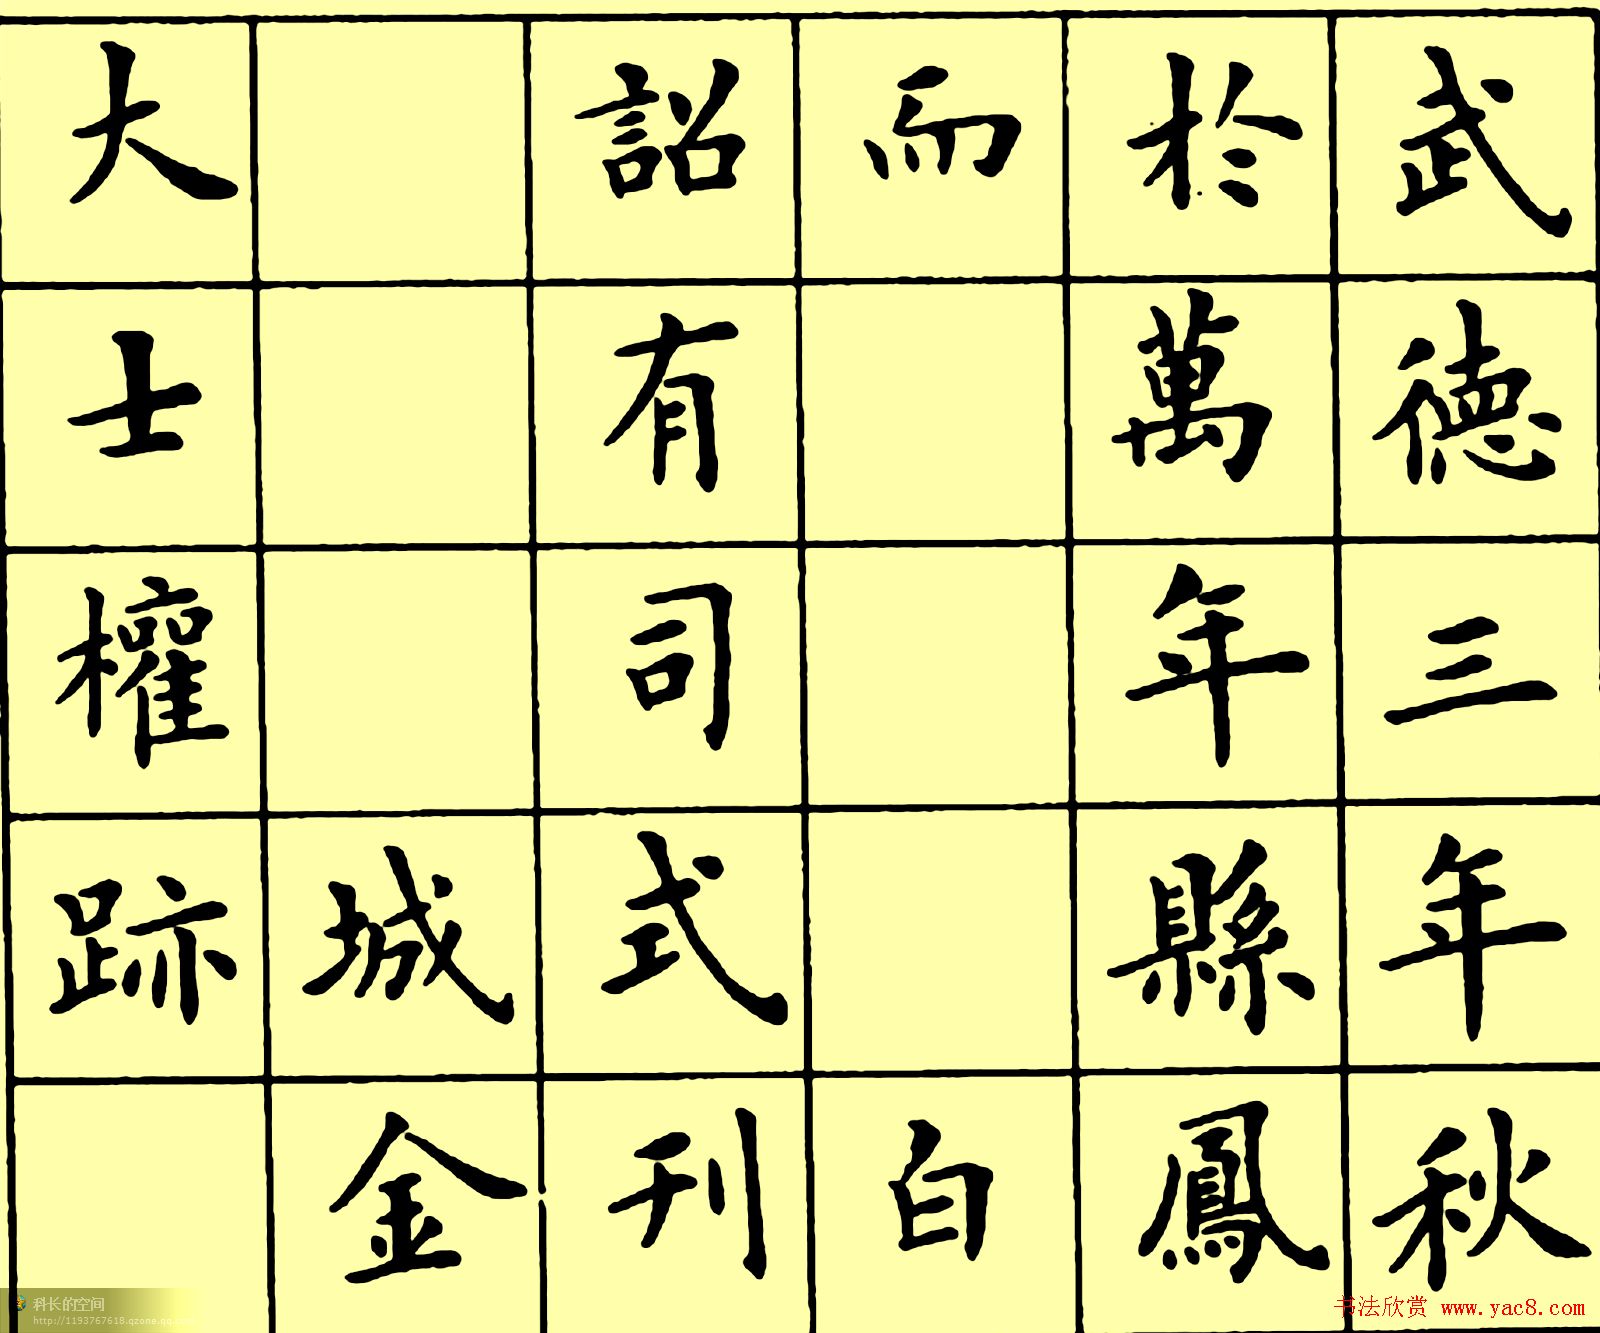 武德三年秋
於萬年縣鳳
而白
詔有司式刊
城金
大士權跡
科长的空间
http://1193767618.qzone.qq.com
书法欣赏 www.yac8.com